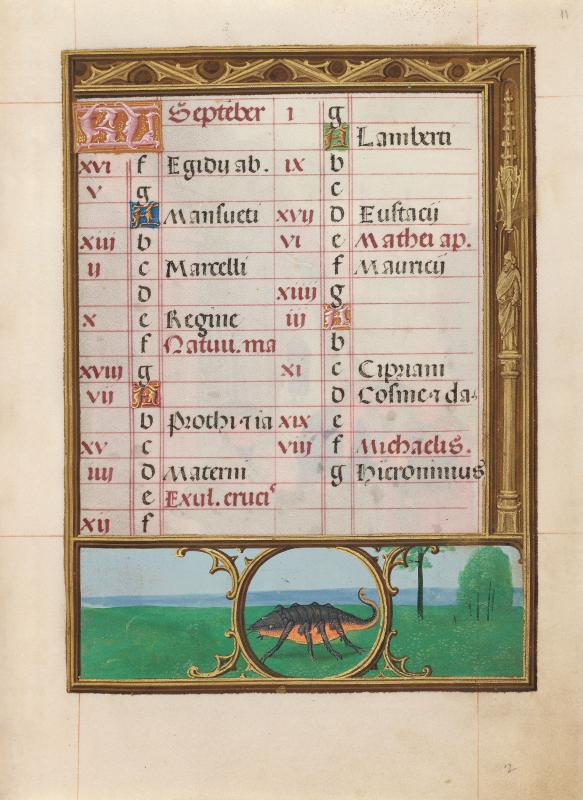 KL Septēber
xvi f Egidij ab.
v g
A Mansueti
xiii b
ij c Marcelli
d
x e Regine
f Natiui. ma
xviij g
vij A
b Prothi ⁊ ia
xv c
iiij d Materni
e Exul. cruci⁹
xij f
i g
A Lamberti
ix b
c
xvij d Eustacij
vi e Mathei ap.
f Mauricij
xiiij g
iij A
b
xi c Cipriani
d Cosme ⁊ da.
xix e
viij f Michaelis.
g Hieronimus
11
2